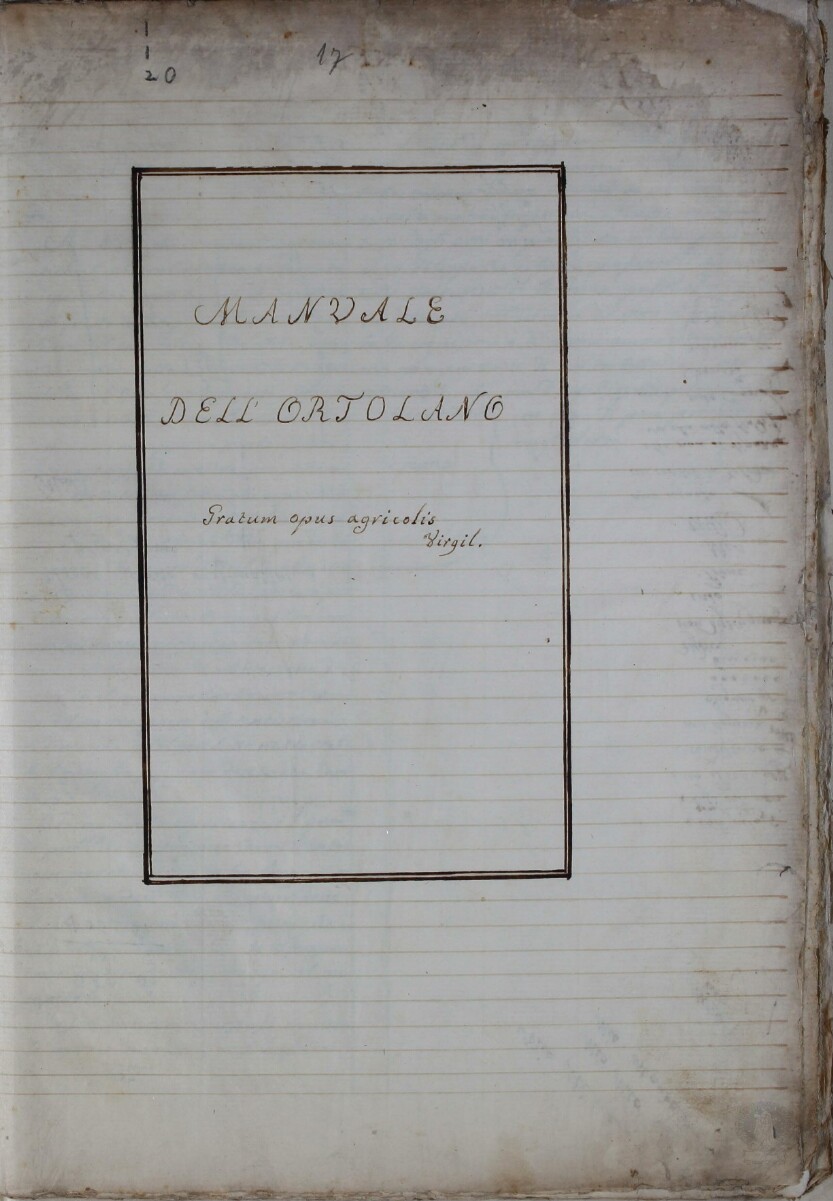 1
1
20
17
MANVALE
DELL' ORTOLANO
Gratum opus agricolis
Virgil.